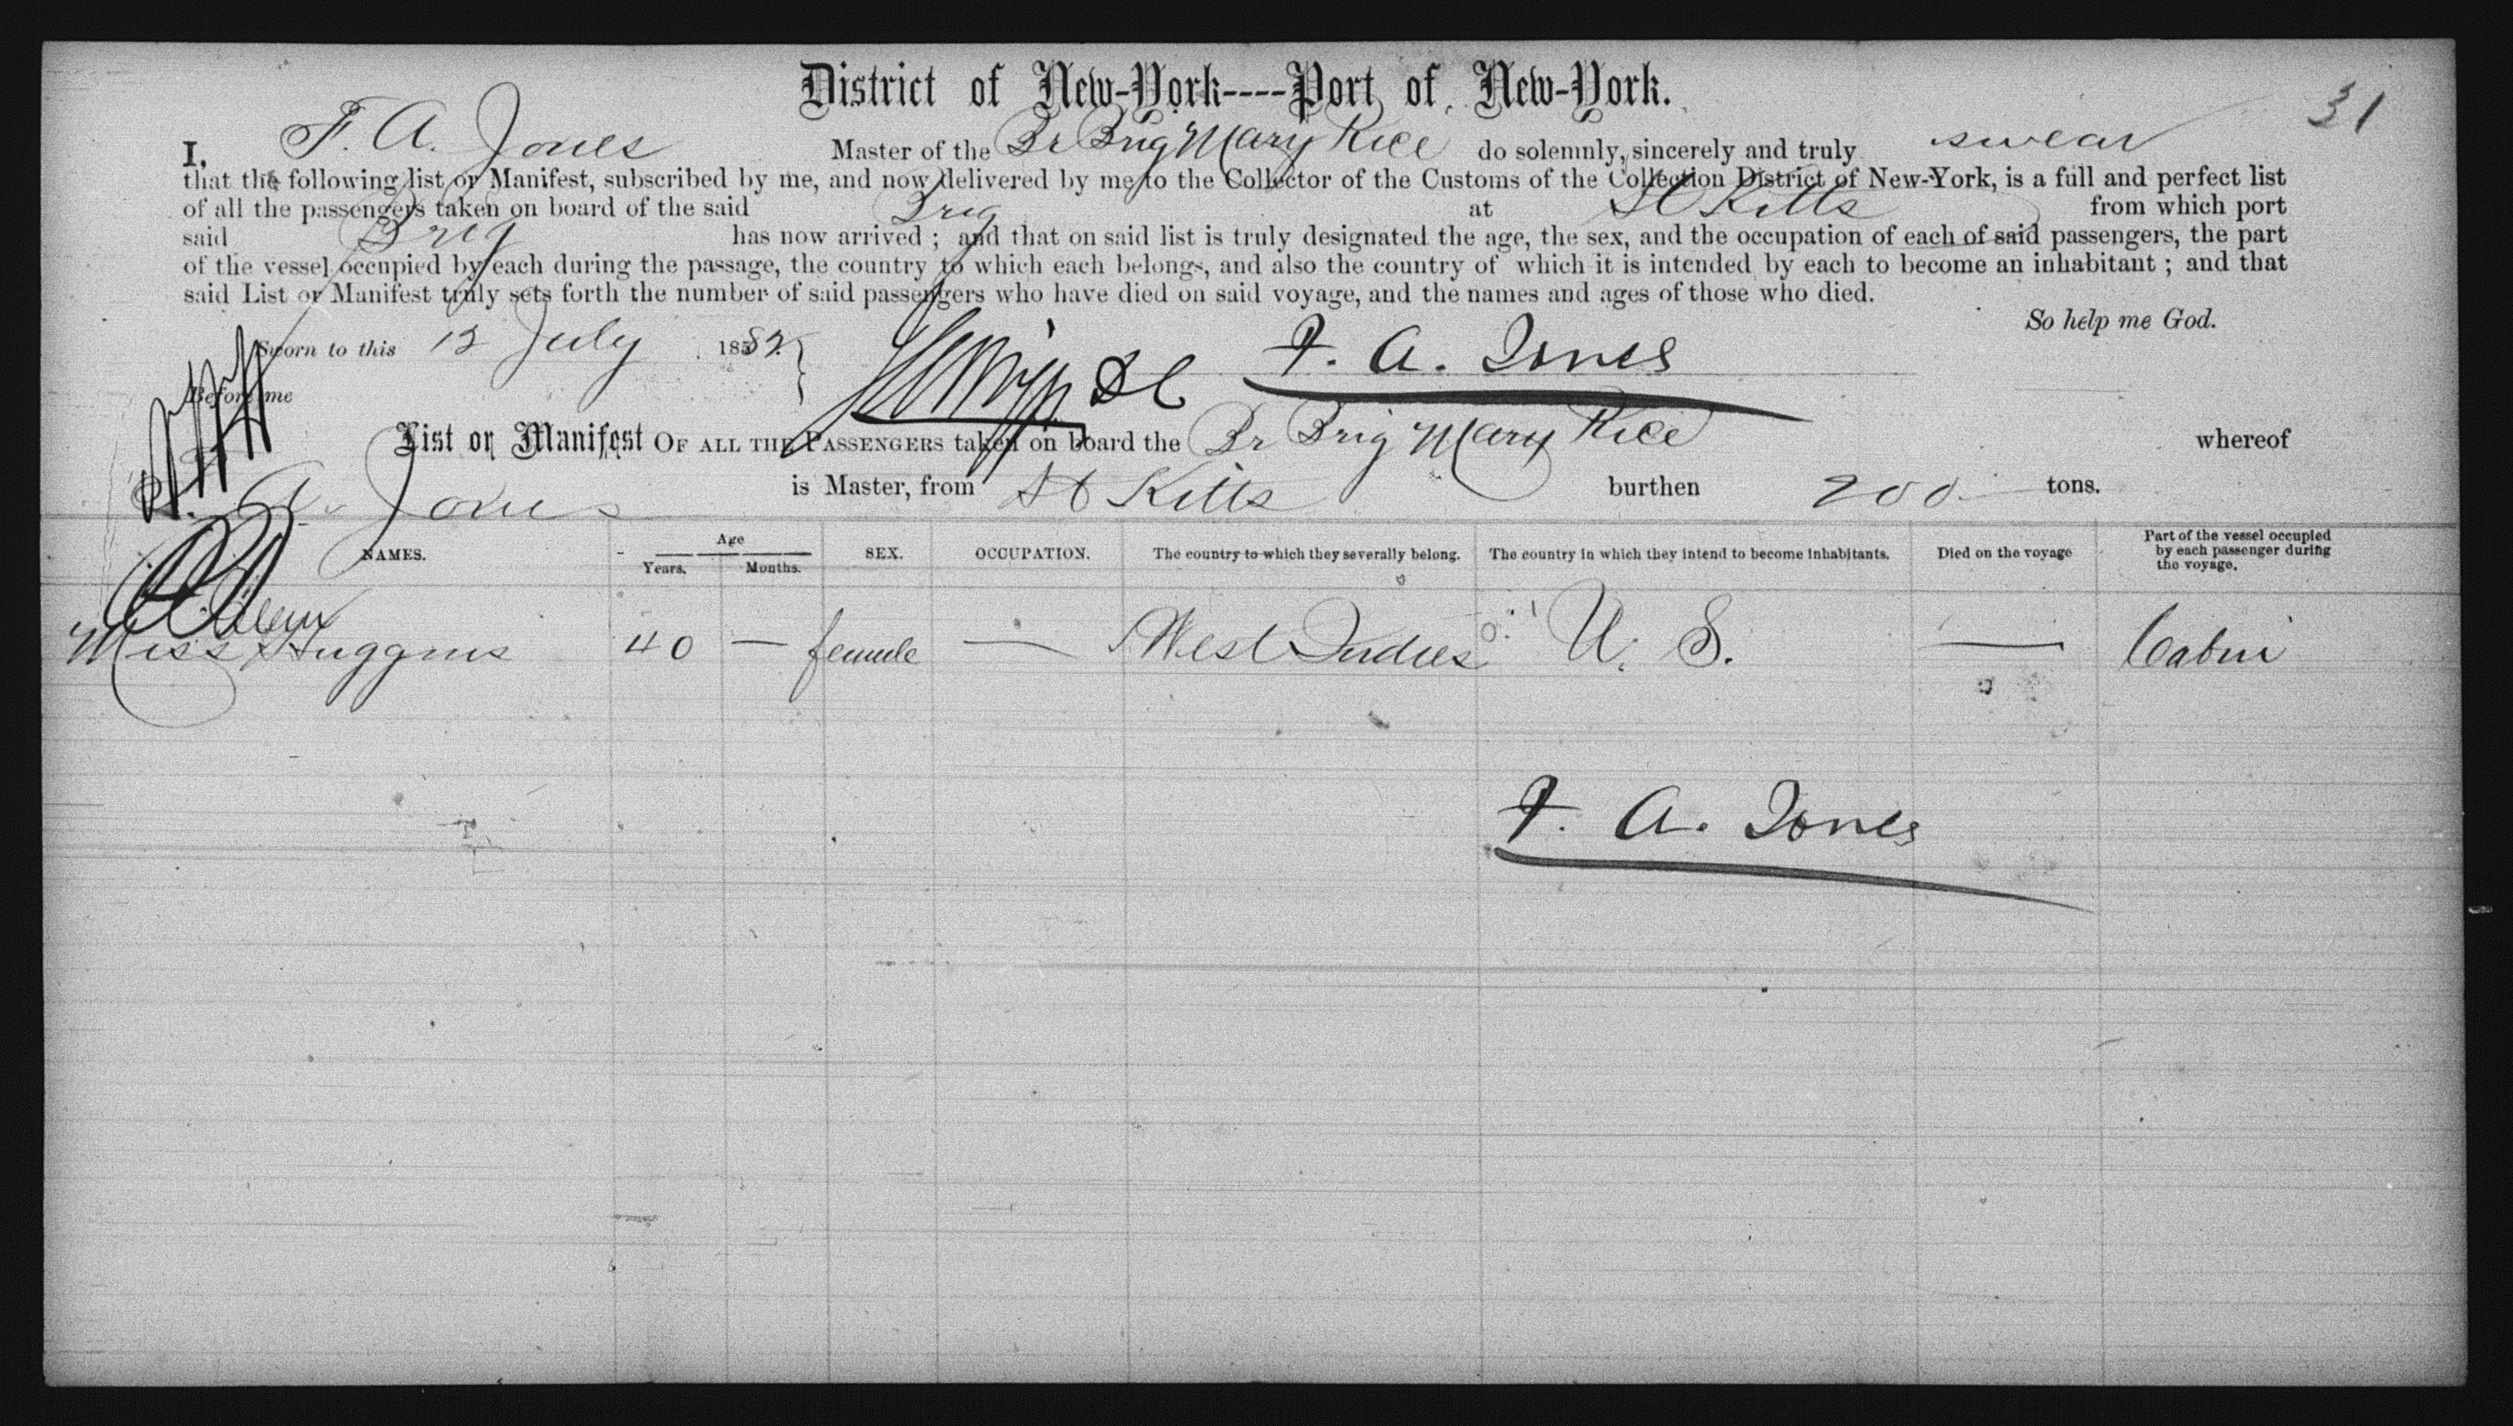 District of New-York----Port of New-York.
31
I, F. A. Jones Master of the Br Brig Mary Rice do solemnly, sincerely and truly swear
that the following list or Manifest, subscribed by me, and now delivered by me to the Collector of the Customs of the Collection District of New-York, is a full and perfect list
of all the passengers taken on board of the said Brig at St Kitts from which port
said Brig has now arrived ; and that on said list is truly designated the age, the sex, and the occupation of each of said passengers, the part
of the vessel occupied by each during the passage, the country to which each belongs, and also the country of which it is intended by each to become an inhabitant ; and that
said List or Manifest truly sets forth the number of said passengers who have died on said voyage, and the names and ages of those who died.
So help me God.
Sworn to this 12 July 1882. F. A. Jones
Before me
List or Manifest OF ALL THE PASSENGERS taken on board the Br Brig Mary Rice whereof
A. Jones is Master, from St Kitts burthen 200 tons.
NAMES. Age Years. Months. SEX. OCCUPATION. The country to which they severally belong. The country in which they intend to become inhabitants. Died on the voyage Part of the vessel occupied by each passenger during the voyage.
Miss Huggins 40 — female — West Indies U. S. — Cabin
F. A. Jones